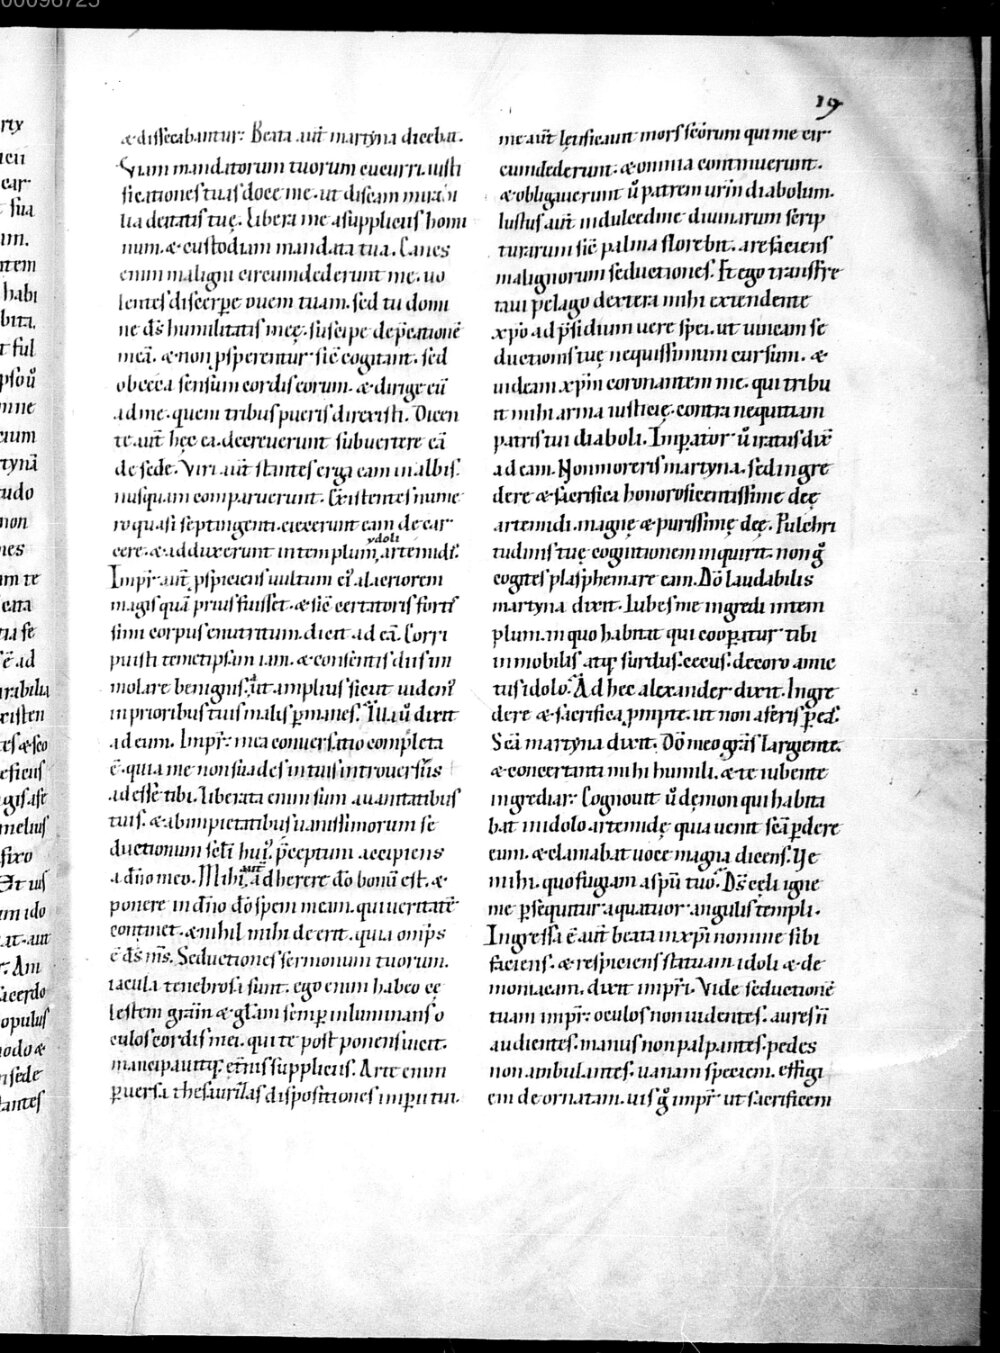 00098725
19
&dissecabantur. Beata aut̄ martyna dicebat.
Viam mandatorum tuorum cucurri. iusti
ficationes tuas doce me. ut discam mirabi
lia deitatis tuę. Libera me a suppliciis homi
num. & custodiam mandata tua. Canes
enim maligni circumdederunt me. uo
lentes discerp̄e ouem tuam. sed tu domi
ne d̄s humilitatis meę. suscipe dep̄cationē
meā. & non p̄sperentur sic̄ cogitant. sed
obceca sensum cordis eorum. & dirige eū
ad me. quem tribus pueris direxisti. Dicen
te aut̄ hęc ea. decreuerunt subuertere eā
de sede. Viri aut̄ stantes erga eam in albis.
nusquam comparuerunt. Existentes nume
ro quasi septingenti. eiecerunt eam de car
cere. & adduxerunt in templum ydoli artemidis.
Imp̄r aut̄ p̄spiciens uultum ei' alacriorem
magis quā prius fuisset. & sic̄ certatoris fortis
simi corpus enutritum. dicit ad eā. Corri
puisti temetipsam iam. & consentis diis im
molare benignis. ut amplius sicut uideris
in prioribus tuis malis p̄manes. Illa ū dixit
ad eum. Imp̄r. mea conuersatio completa
ē. quia me non suades in tuis introuersiis
adesse tibi. Liberata enim sum a uanitatibus
tuis. & ab impietatibus uanissimorum se
ductionum sc̄li hui'. p̄ceptum accipiens
a dn̄o meo. Mihi aut̄ adherere dō bonū est. &
ponere in dn̄o dō spem meam. qui ueritatē
continet. & nihil mihi deerit. quia omps̄
ē d̄s ms̄. Seductiones sermonum tuorum.
iacula tenebrosa sunt. ego enim habeo cę
lestem grām & glām semp̄ inluminans o
culos cordis mei. qui te post ponens uicit.
mancipauitq; et̄nis suppliciis. Arte enim
p̄uersa thesaurizas dispositiones imp̄ii tui.
me aut̄ lętificauit mors sc̄orum qui me cir
cumdederunt. & omnia continuerunt.
& obligauerunt ū patrem ur̄m diabolum.
Iustus aut̄ in dulcedine diuinarum scrip
turarum sic̄ palma florebit. arefaciens
malignorum seductiones. Et ego transfre
taui pelago dextera mihi extendente
xp̄o ad p̄sidium uere spei. ut uincam se
ductionis tuę nequissimum cursum. &
uideam xp̄m coronantem me. qui tribu
it mihi arma iusticię. contra nequitiam
patris tui diaboli. Imp̄ator ū iratus dix̄
ad eam. Non morieris martyna. sed ingre
dere & sacrifica honorificentissime deę
artemidi. magnę & purissimę deę. Pulchri
tudinis tuę cogitionem inquirit. non ḡ
cogites plasphemare eam. Dō laudabilis
martyna dixit. Iubes me ingredi in tem
plum. in quo habitat qui coop̄atur tibi
inmobilis atq; surdus. cecus. decoro amic
tus idolo. Ad hęc alexander dixit. Ingre
dere & sacrifica p̄mpte. ut non aferis p̄ces.
Scā martyna dixit. Dō meo grās largiente.
& concertanti mihi humili. & te iubente
ingrediar. Cognouit ū dęmon qui habita
bat in idolo artemidę quia uenit scā p̄dere
eum. & clamabat uoce magna dicens. Vę
mihi. quo fugiam a sp̄u tuo. D̄s cęli igne
me p̄sequitur a quatuor angulis templi.
Ingressa ē aut̄ beata in xp̄i nomine sibi
faciens. & respiciens statuam idoli & de
moniacam. dixit imp̄ri. Vide seductionē
tuam imp̄r. oculos non uidentes. aures n̄
audientes. manus non palpantes. pedes
non ambulantes. uanam speciem. effigi
em deornatam. uis ḡ imp̄r ut sacrificem